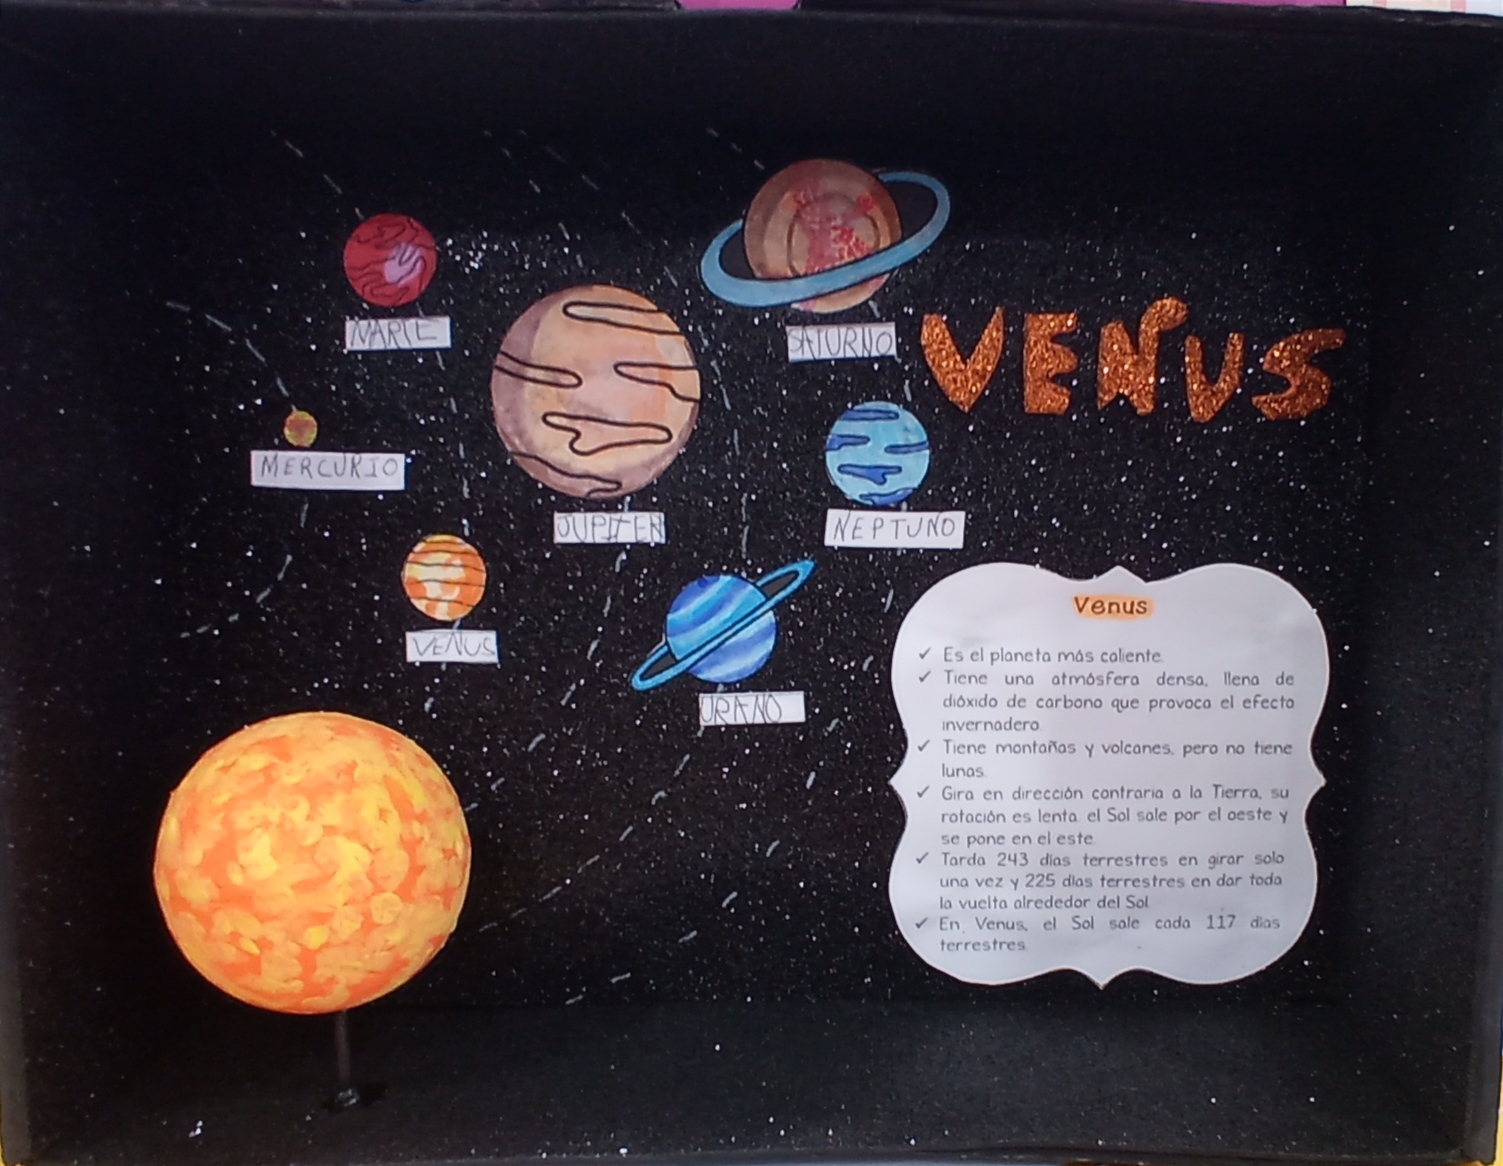 MARTE
SATURNO
VENUS
MERCURIO
JUPITER
NEPTUNO
VENUS
URANO
Venus
✓ Es el planeta más caliente.
✓ Tiene una atmósfera densa, llena de
dióxido de carbono que provoca el efecto
invernadero.
✓ Tiene montañas y volcanes, pero no tiene
lunas.
✓ Gira en dirección contraria a la Tierra, su
rotación es lenta el Sol sale por el oeste y
se pone en el este.
✓ Tarda 243 días terrestres en girar solo
una vez y 225 días terrestres en dar toda
la vuelta alrededor del Sol.
✓ En Venus, el Sol sale cada 117 días
terrestres.